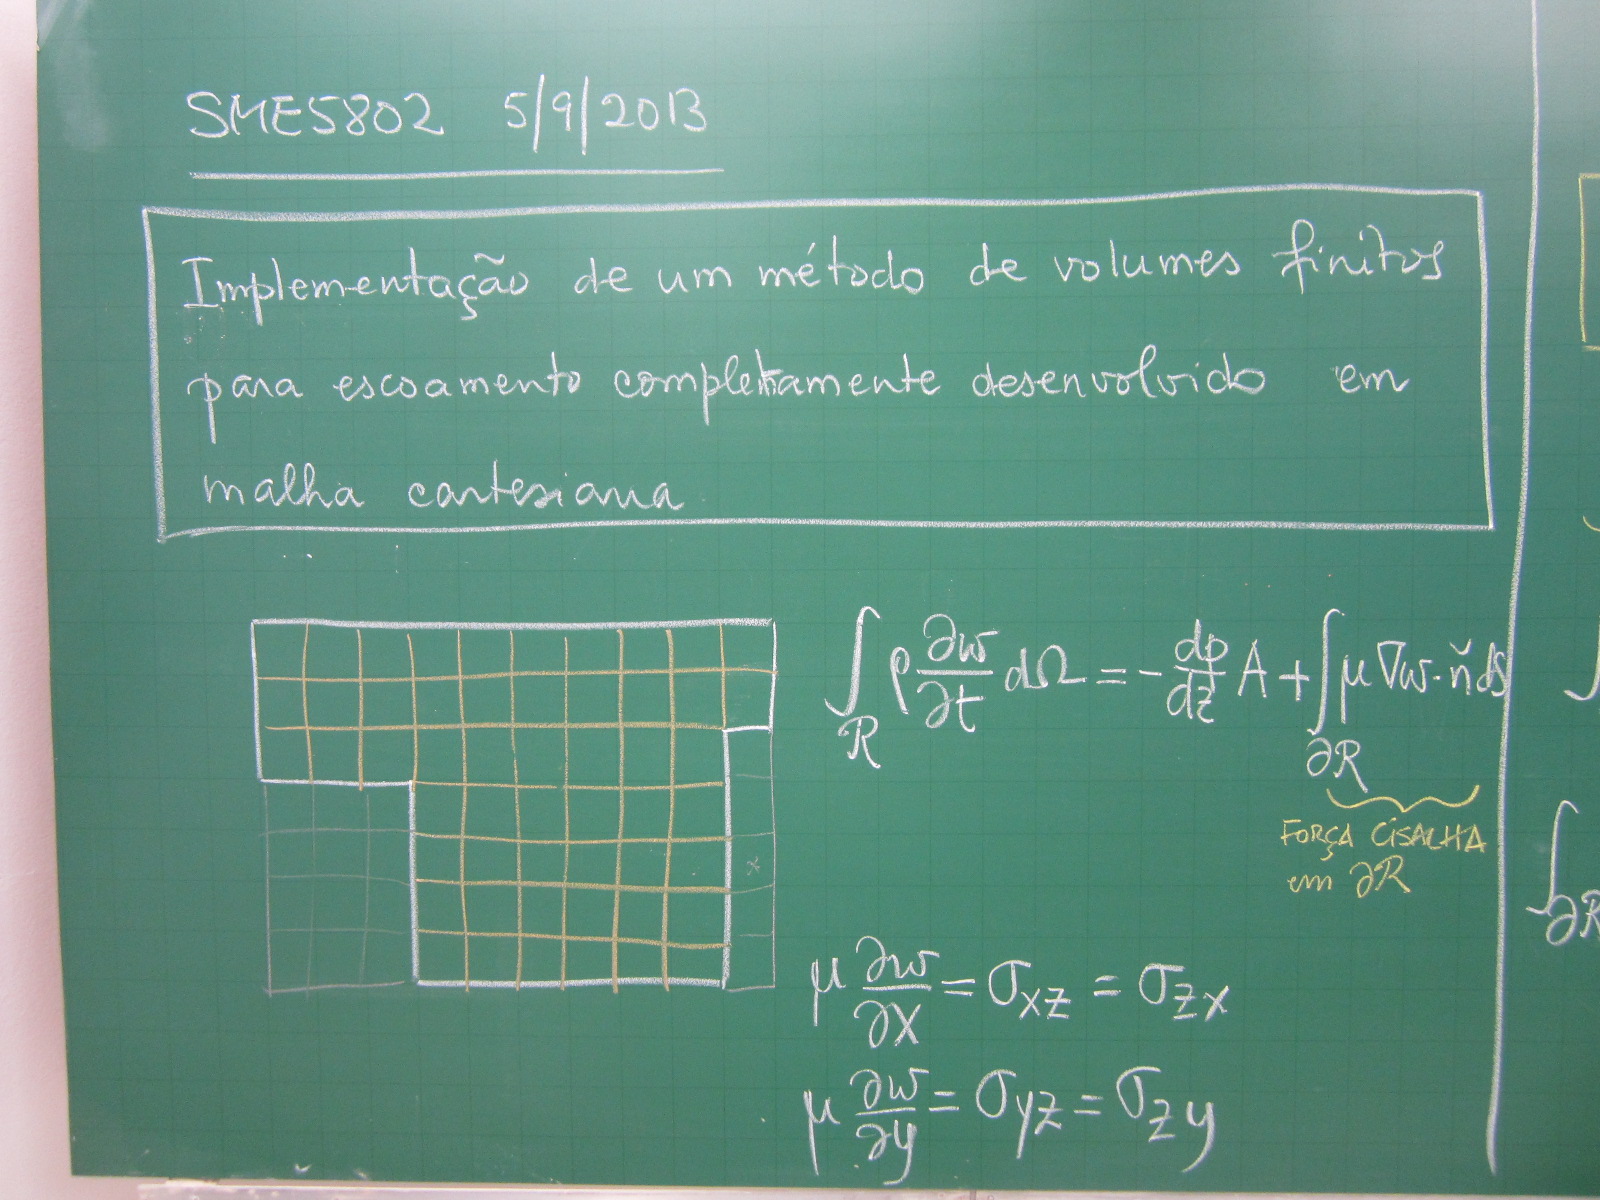 SME5802 5/9/2013
Implementação de um método de volumes finitos
para escoamento completamente desenvolvido em
malha cartesiana
∫_R ρ ∂w/∂t dΩ = - dp/dz A + ∫_∂R μ ∇w · ň dS
FORÇA CISALHA
em ∂R
x
μ ∂w/∂x = σxz = σzx
μ ∂w/∂y = σyz = σzy
∫_∂R